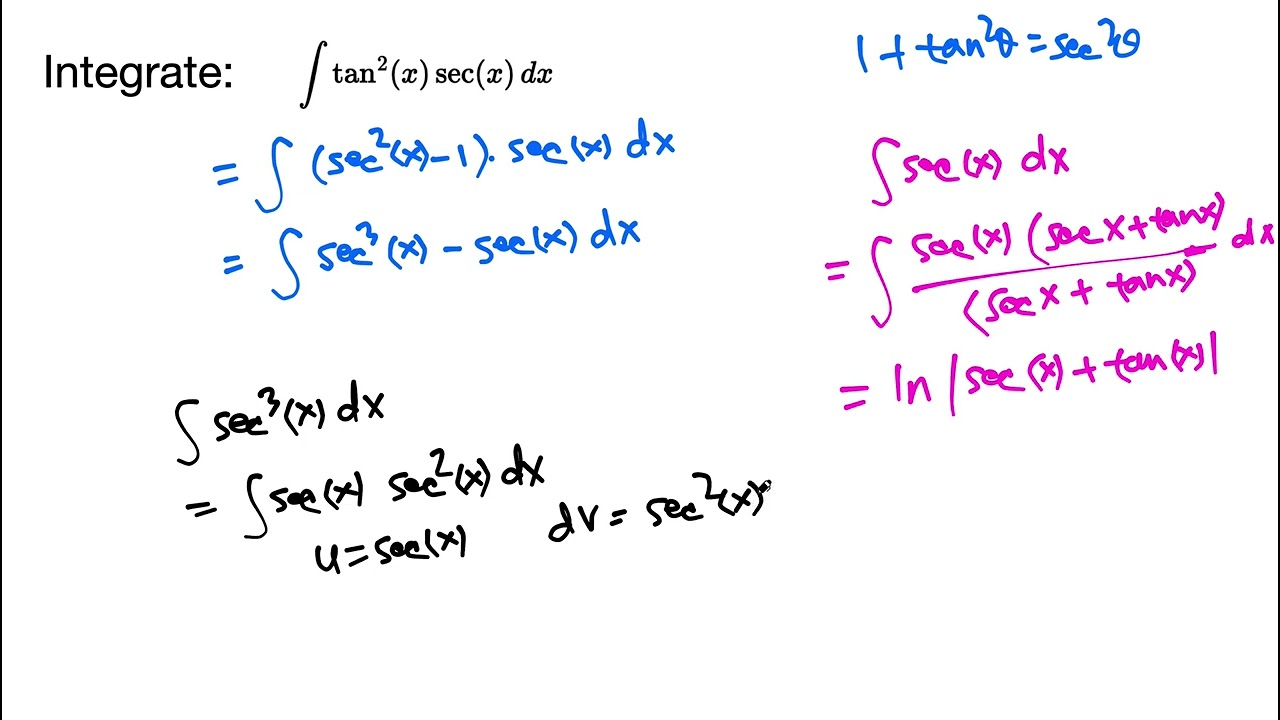 Integrate: ∫ tan²(x) sec(x) dx
= ∫ (sec²(x) − 1) · sec(x) dx
= ∫ sec³(x) − sec(x) dx
1 + tan²θ = sec²θ
∫ sec(x) dx
= ∫ sec(x) (sec x + tan x) / (sec x + tan x) dx
= ln |sec(x) + tan(x)|
∫ sec³(x) dx
= ∫ sec(x) sec²(x) dx
u = sec(x) dv = sec²(x)